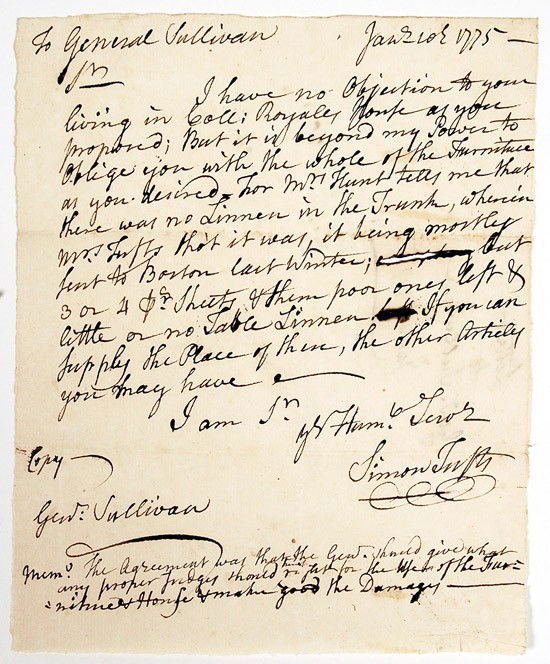 To General Sullivan Jany 10th 1775 —
Sr
I have no Objection to your
living in Coll: Royales House as you
proposed; But it is beyond my Power to
Oblige you with the whole of the Furniture
as you desired. For Mrs Hunt tells me that
there was no Linnen in the Trunk, wherein
Mrs. Tufts tho't it was, it being mostly
sent to Boston last Winter; but
3 or 4 pr Sheets & them poor ones left &
little or no Table Linnen If you can
supply the Place of these, the other Articles
you may have
I am Sr
yr Humle Servt
Simon Tufts
Copy
Genl. Sullivan
Memo. The Agreement was that the Genl. should give what
any proper Judges should think right for the Use of the Fur=
=niture & House & make good the Damages —